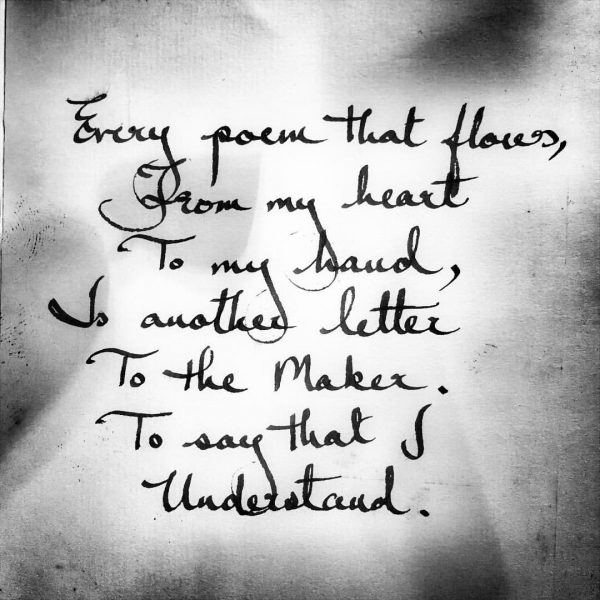 Every poem that flows,
From my heart
To my hand,
Is another letter
To the Maker.
To say that I
Understand.